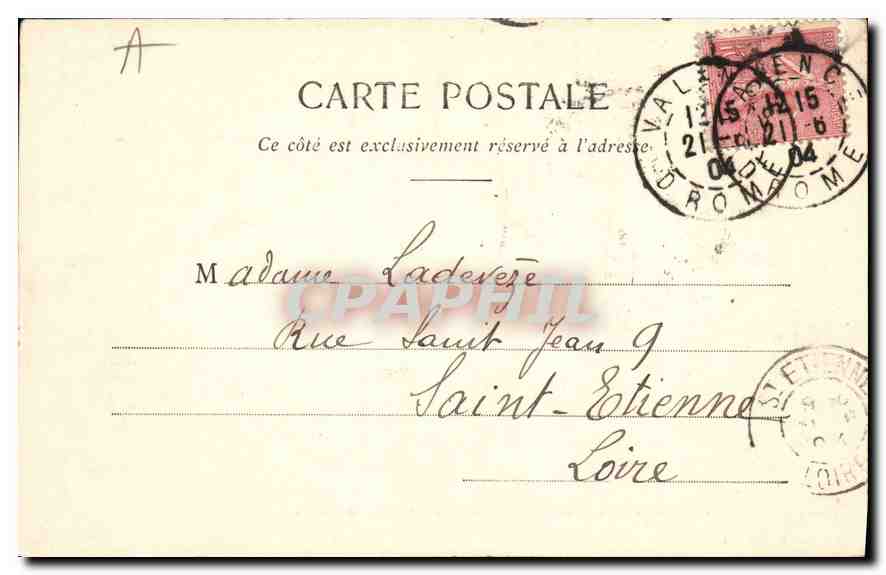 A
CARTE POSTALE
Ce côté est exclusivement réservé à l'adresse
VALENCE
12 15
21 -6
04
DROME
VALENCE
12 15
21 -6
04
DROME
Madame Ladevèze
CPAPHIL
Rue Saint Jean 9
Saint-Etienne
Loire
ST ETIENNE
LOIRE